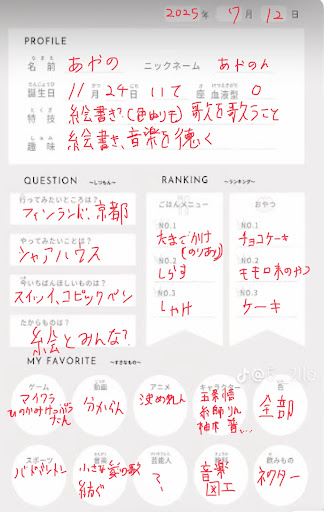 2025年 7月12日
PROFILE
なまえ
名前 あやの ニックネーム あやのん
たんじょうび
誕生日 11月24日 いて座 血液型 O
とくぎ
特技 絵書き(色ぬりも) 歌を歌うこと
しゅみ
趣味 絵書き、音楽を聴く
QUESTION ~しつもん~
行ってみたいところは?
フィンランド、京都
やってみたいことは?
シェアハウス
今いちばんほしいものは?
スイッチ、コピックペン
たからものは?
絵とみんな?
RANKING ~ランキング~
ごはんメニュー
NO.1
たまごかけ
(のりあり)
NO.2
しらす
NO.3
しゃけ
おやつ
NO.1
チョコケーキ
NO.2
NO.3
ケーキ
MY FAVORITE ~すきなもの~
ゲーム
マイクラ
動画
分からん
アニメ
決めれん
キャラクター
五条悟
色
全部
スポーツ
バドミントン
音楽
小さな
紡ぐ
芸能人
?
教科
音楽
図工
飲みもの
ネクター